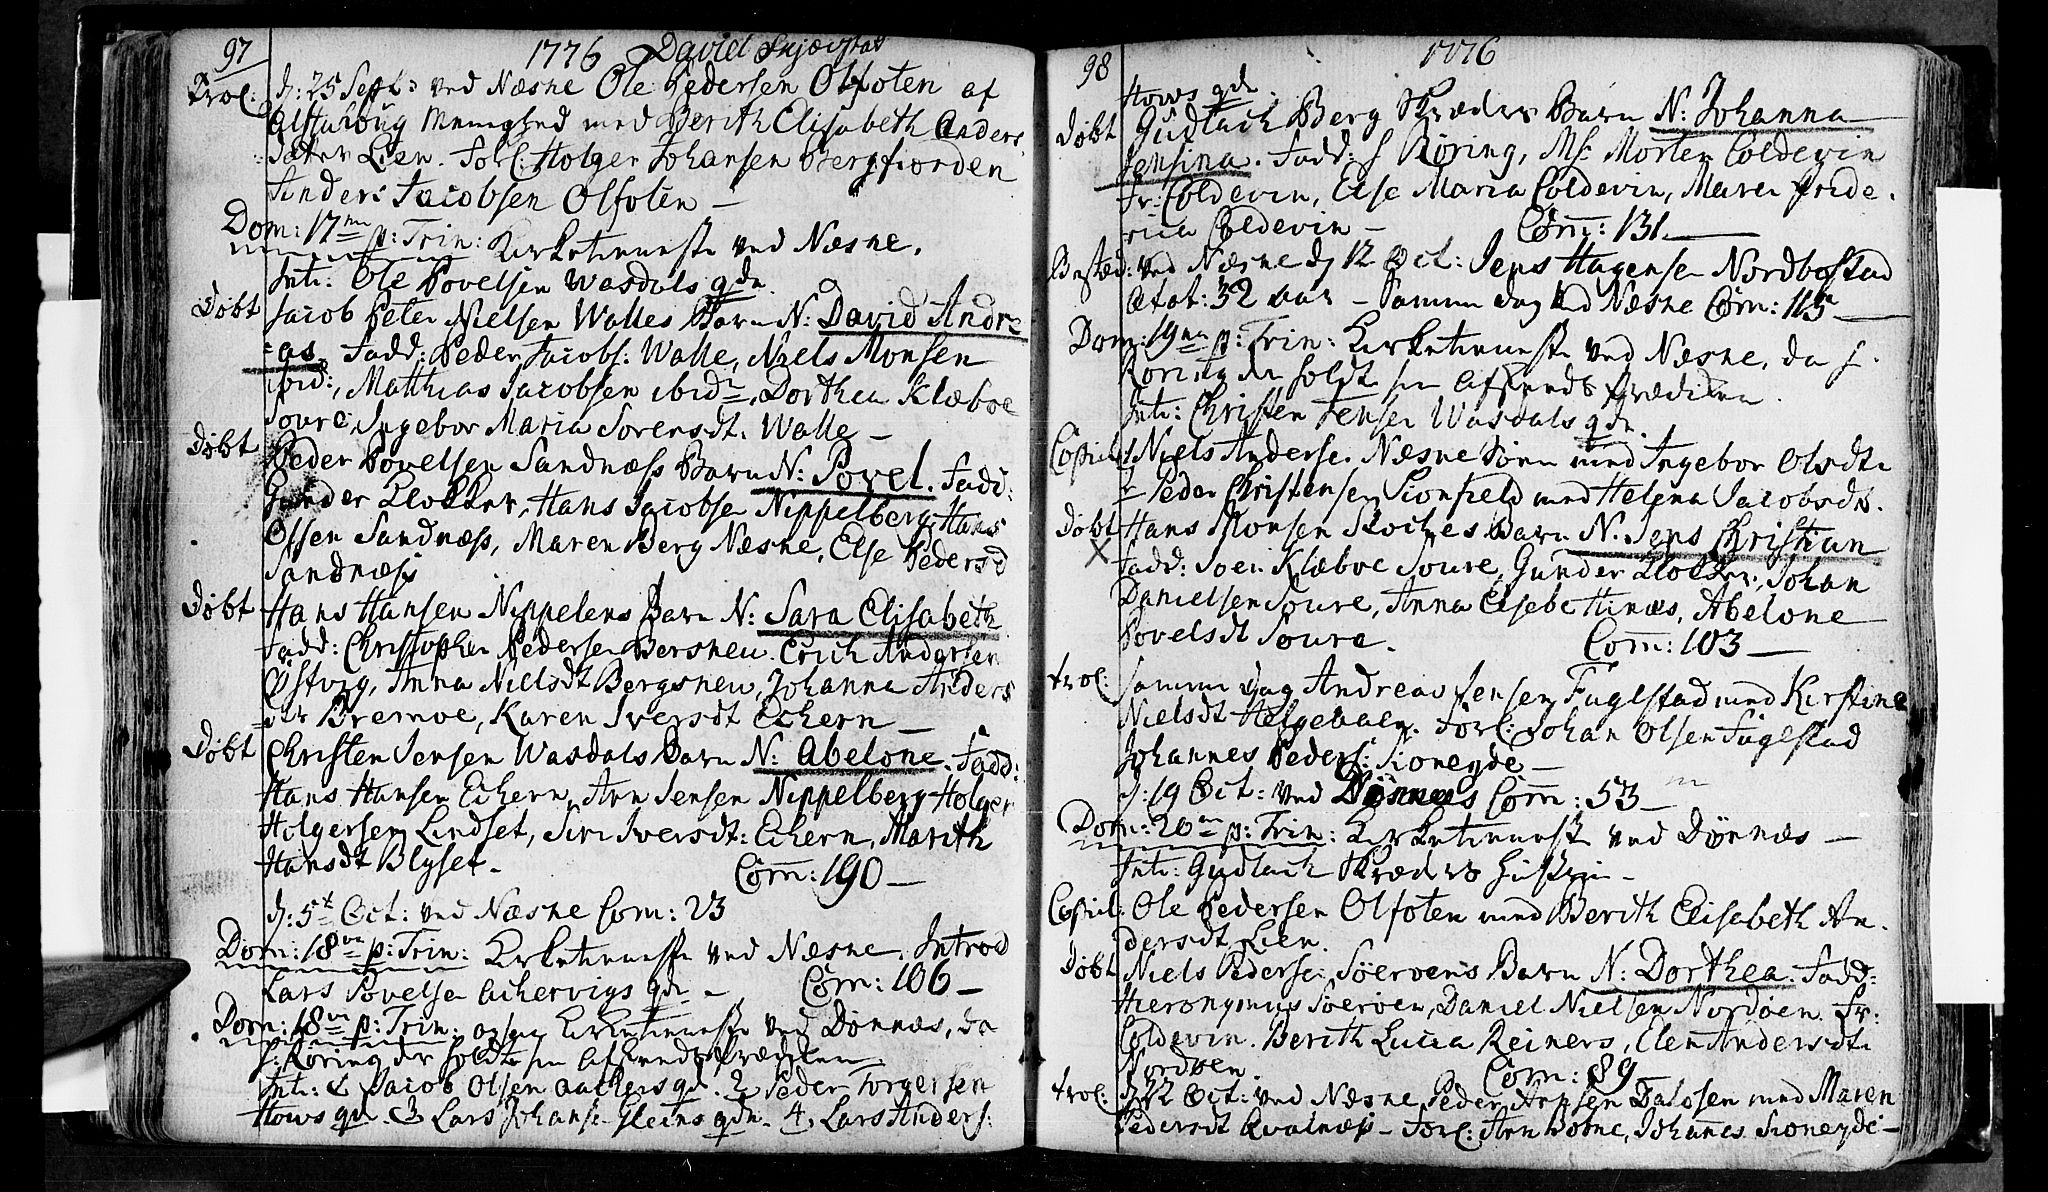 97
1776 David Skjævstad
Trol: d: 25 Sept: ved Næsne Ole Pedersen Olfoten af
Alstahoug Menighed med Berith Elisabeth Anders
datter Lien. Forl: Holger Johansen Bergfiorden
Anders Jacobsen Olfoten –
Dom: 17me p: Trin: Kirketieneste ved Næsne.
Int: Ole Povelsen Wasdals qde
Døbt Jacob Peter Nielsen Walles Barn N: David Andre
as. Fadd: Peder Jacobs: Walle, Niels Monsen
ibid:, Matthias Jacobsen ibid, Dorthea Klæboe
Soure, Ingebor Maria Sorensdt: Walle –
Døbt Peder Povelsen Sandnæss Barn N: Povel. Fadd:
Gunder Klokker, Hans Jacobsen Nippelberg, Hans
Olsen Sandnæss, Maren Berg Næsne, Else Pedersd
Sandnæss
Døbt Hans Hansen Nippelens Barn N: Sara Elisabeth
Fadd: Christopher Pedersen Bersneu. Erich Andersen
Østvig, Anna Nielsdt Bergsneu, Johanna Anders
dtr Bremoe, Karen Iversdt Echern –
Døbt Christen Jensen Wasdals Barn N: Abelone. Fadd:
Hans Hansen Echern, Arn Jensen Nippelberg, Holger
Holgersen Lindset, Siri Iversdt: Echern, Marith
Hansdt Blyset.
Com: 190 –
d: 5t Oct: ved Næsne Com: 23
Dom: 18ve p: Trin: Kirketieneste ved Næsne. Introd
Lars Povelsen Achervigs qde – Com: 106 –
Dom: 18ve p: Trin: ogsaa Kirketieneste ved Dønnæs, da
S: Røring der holdt sin Afskeeds Prædiken
Int: 1 Jacob Olsen Aachers qd. 2 Peder Torgersen
Hows qd. 3 Lars Johanse Gleins qde. 4. Lars Anders:
98
1776
Hows qde.
Døbt Gudlach Berg Skræders Barn N: Johanna
Jensina. Fadd: S Røring, Ms: Morten Coldevin
Fr: Coldevin, Else Maria Coldevin, Maren Fride
rica Coldevin – Com: 131. –
Begrav: ved Næsne d 12 Oct: Jens Hagensen Nordbostad
Ætat: 32 aar – Samme dag ved Næsne Com: 113 –
Dom: 19na p: Trin: Kirketieneste ved Næsne, da S.
Røring der holdt sin Afskeeds Prædiken.
Int: Christen Jensen Wasdals qde.
Copul: 1 Niels Andersen Næsne Søren med Ingebor Olsdt:
2 Peder Christensen Sionfield med Helena Jacobsdt.
Døbt Hans Monsen Stoches Barn N. Jens Christian
X Fadd: Soer. Klæboe Soure, Gunder Klokker, Johan
Danielsen Soure, Anna Elsebe Hinæs, Abelone
Povelsdt Soure. Com: 103 –
Trol: samme dag Andreas Jensen Fuglestad med Kirstine
Nielsdt Helgebaen. Forl: Johan Olsen Fuglestad
Johannes Peders: Sioneyde –
d: 19 Oct: ved Dönnæs Com: 53 –
Dom: 20me p: Trin: Kirketieneste ved Dønnæs –
Int: Gudlach Skræders Hustru –
Copul: Ole Pedersen Olfoten med Berith Elisabeth An
dersdt Lien.
Døbt Niels Pedersen Søeroens Barn N: Dorthea. Fadd:
Hieronymus Søerøen, Daniel Nielsen Nordøen. Fr:
Coldevin. Berith Lucia Reiners, Elen Andersdt:
Nordøen. Com: 89
Trol: d 22 Oct: ved Næsne Peder Arnsen Dalosen med Maren
Pedersdt Qualnæss – Forl: Arn Dosne, Johanes Sioneyde –